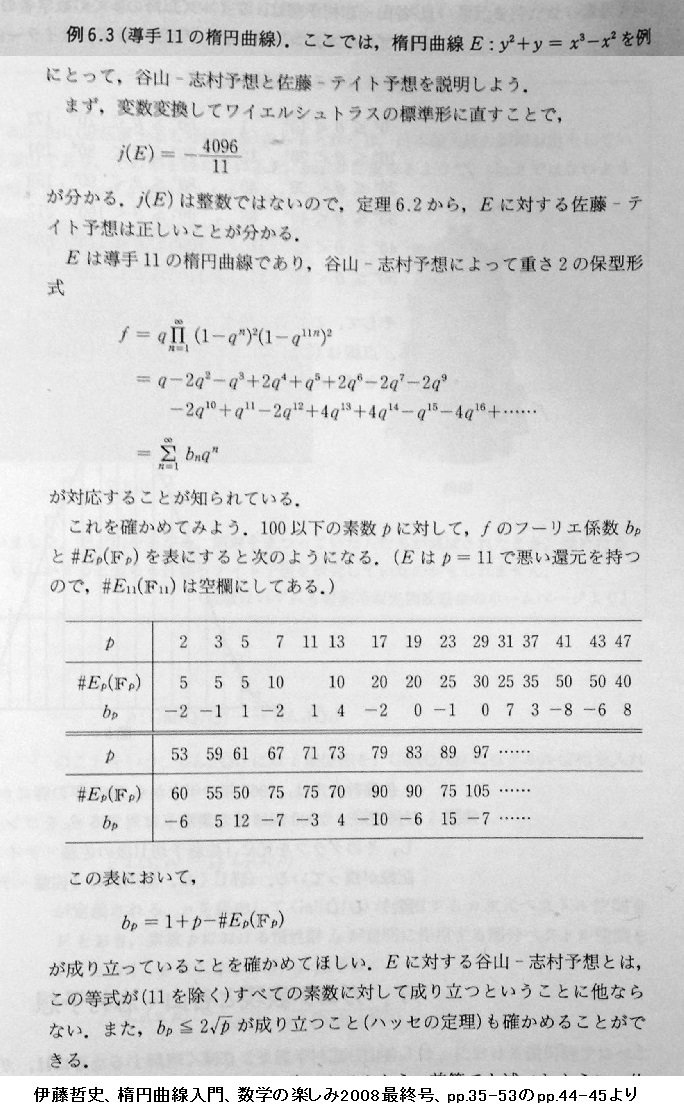 例6.3 (導手11の楕円曲線). ここでは, 楕円曲線 E : y²+y = x³−x² を例
にとって, 谷山 - 志村予想と佐藤 - テイト予想を説明しよう.
まず, 変数変換してワイエルシュトラスの標準形に直すことで,
j(E) = −4096/11
が分かる. j(E) は整数ではないので, 定理6.2から, E に対する佐藤 - テ
イト予想は正しいことが分かる.
E は導手11の楕円曲線であり, 谷山 - 志村予想によって重さ2の保型形
式
f = q∏_{n=1}^{∞} (1−qⁿ)²(1−q¹¹ⁿ)²
= q−2q²−q³+2q⁴+q⁵+2q⁶−2q⁷−2q⁹
−2q¹⁰+q¹¹−2q¹²+4q¹³+4q¹⁴−q¹⁵−4q¹⁶+……
= ∑_{n=1}^{∞} bₙqⁿ
が対応することが知られている.
これを確かめてみよう. 100以下の素数 p に対して, f のフーリエ係数 bₚ
と #Eₚ(𝔽ₚ) を表にすると次のようになる. (E は p = 11 で悪い還元を持つ
ので, #E₁₁(𝔽₁₁) は空欄にしてある.)
p 2 3 5 7 11 13 17 19 23 29 31 37 41 43 47
#Eₚ(𝔽ₚ) 5 5 5 10 10 20 20 25 30 25 35 50 50 40
bₚ −2 −1 1 −2 1 4 −2 0 −1 0 7 3 −8 −6 8
p 53 59 61 67 71 73 79 83 89 97 ……
#Eₚ(𝔽ₚ) 60 55 50 75 75 70 90 90 75 105 ……
bₚ −6 5 12 −7 −3 4 −10 −6 15 −7 ……
この表において,
bₚ = 1+p−#Eₚ(𝔽ₚ)
が成り立っていることを確かめてほしい. E に対する谷山 - 志村予想とは,
この等式が(11を除く)すべての素数に対して成り立つということに他なら
ない. また, bₚ ≦ 2√p が成り立つこと(ハッセの定理)も確かめることがで
きる.
伊藤哲史、楕円曲線入門、数学の楽しみ2008最終号、pp.35-53のpp.44-45より